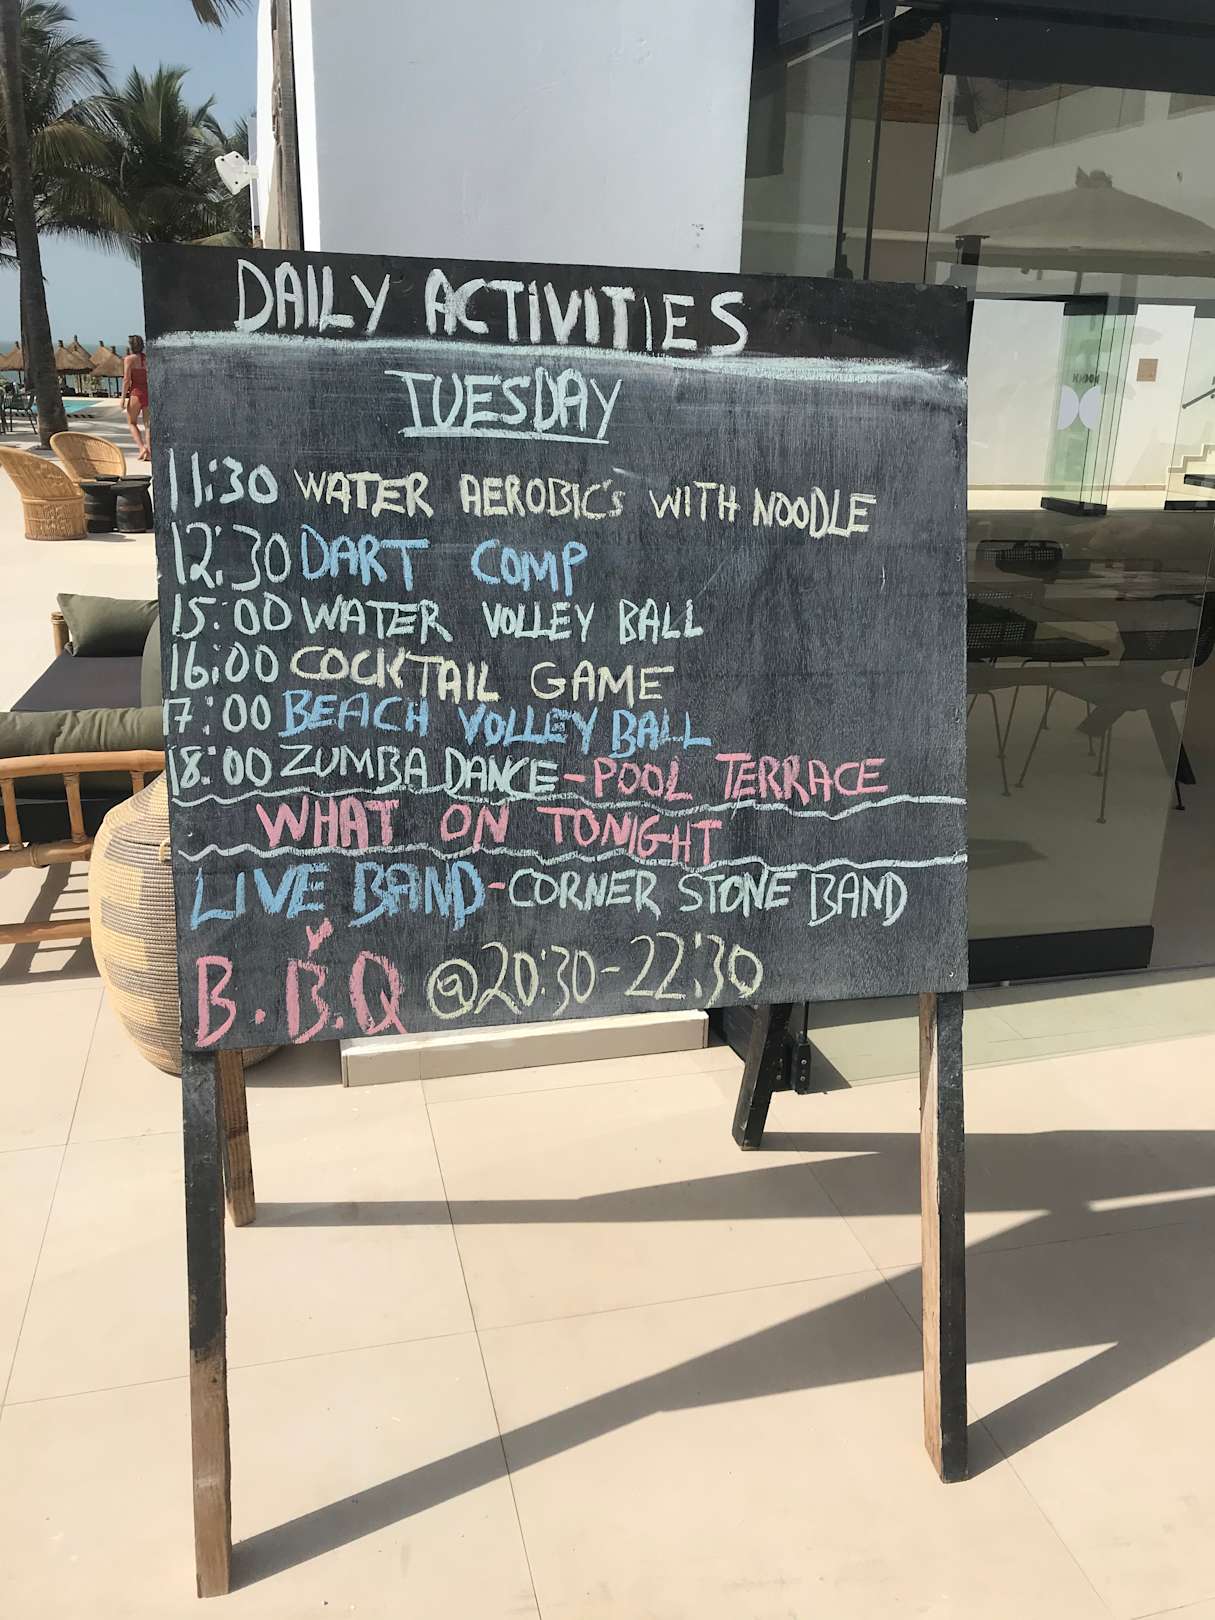 DAILY ACTIVITIES
TUESDAY
11:30 WATER AEROBIC'S WITH NOODLE
12:30 DART COMP
15:00 WATER VOLLEY BALL
16:00 COCKTAIL GAME
17:00 BEACH VOLLEY BALL
18:00 ZUMBA DANCE-POOL TERRACE
WHAT ON TONIGHT
LIVE BAND-CORNER STONE BAND
B.B.Q @20:30-22:30